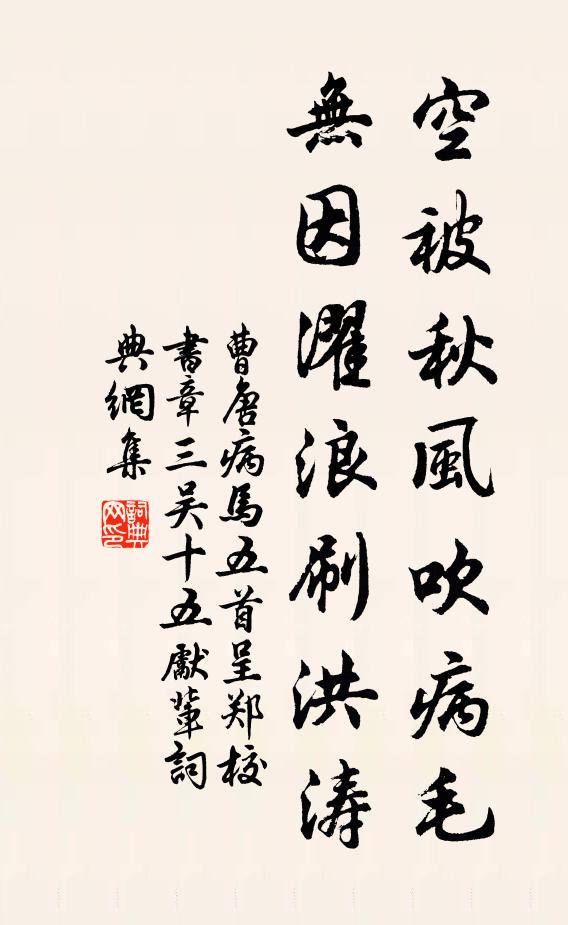 空被秋風吹病毛
無因濯浪刷洪濤
曹唐病馬五首呈郑校
書章三吴十五獻輩詞
典網集
詞典
网印